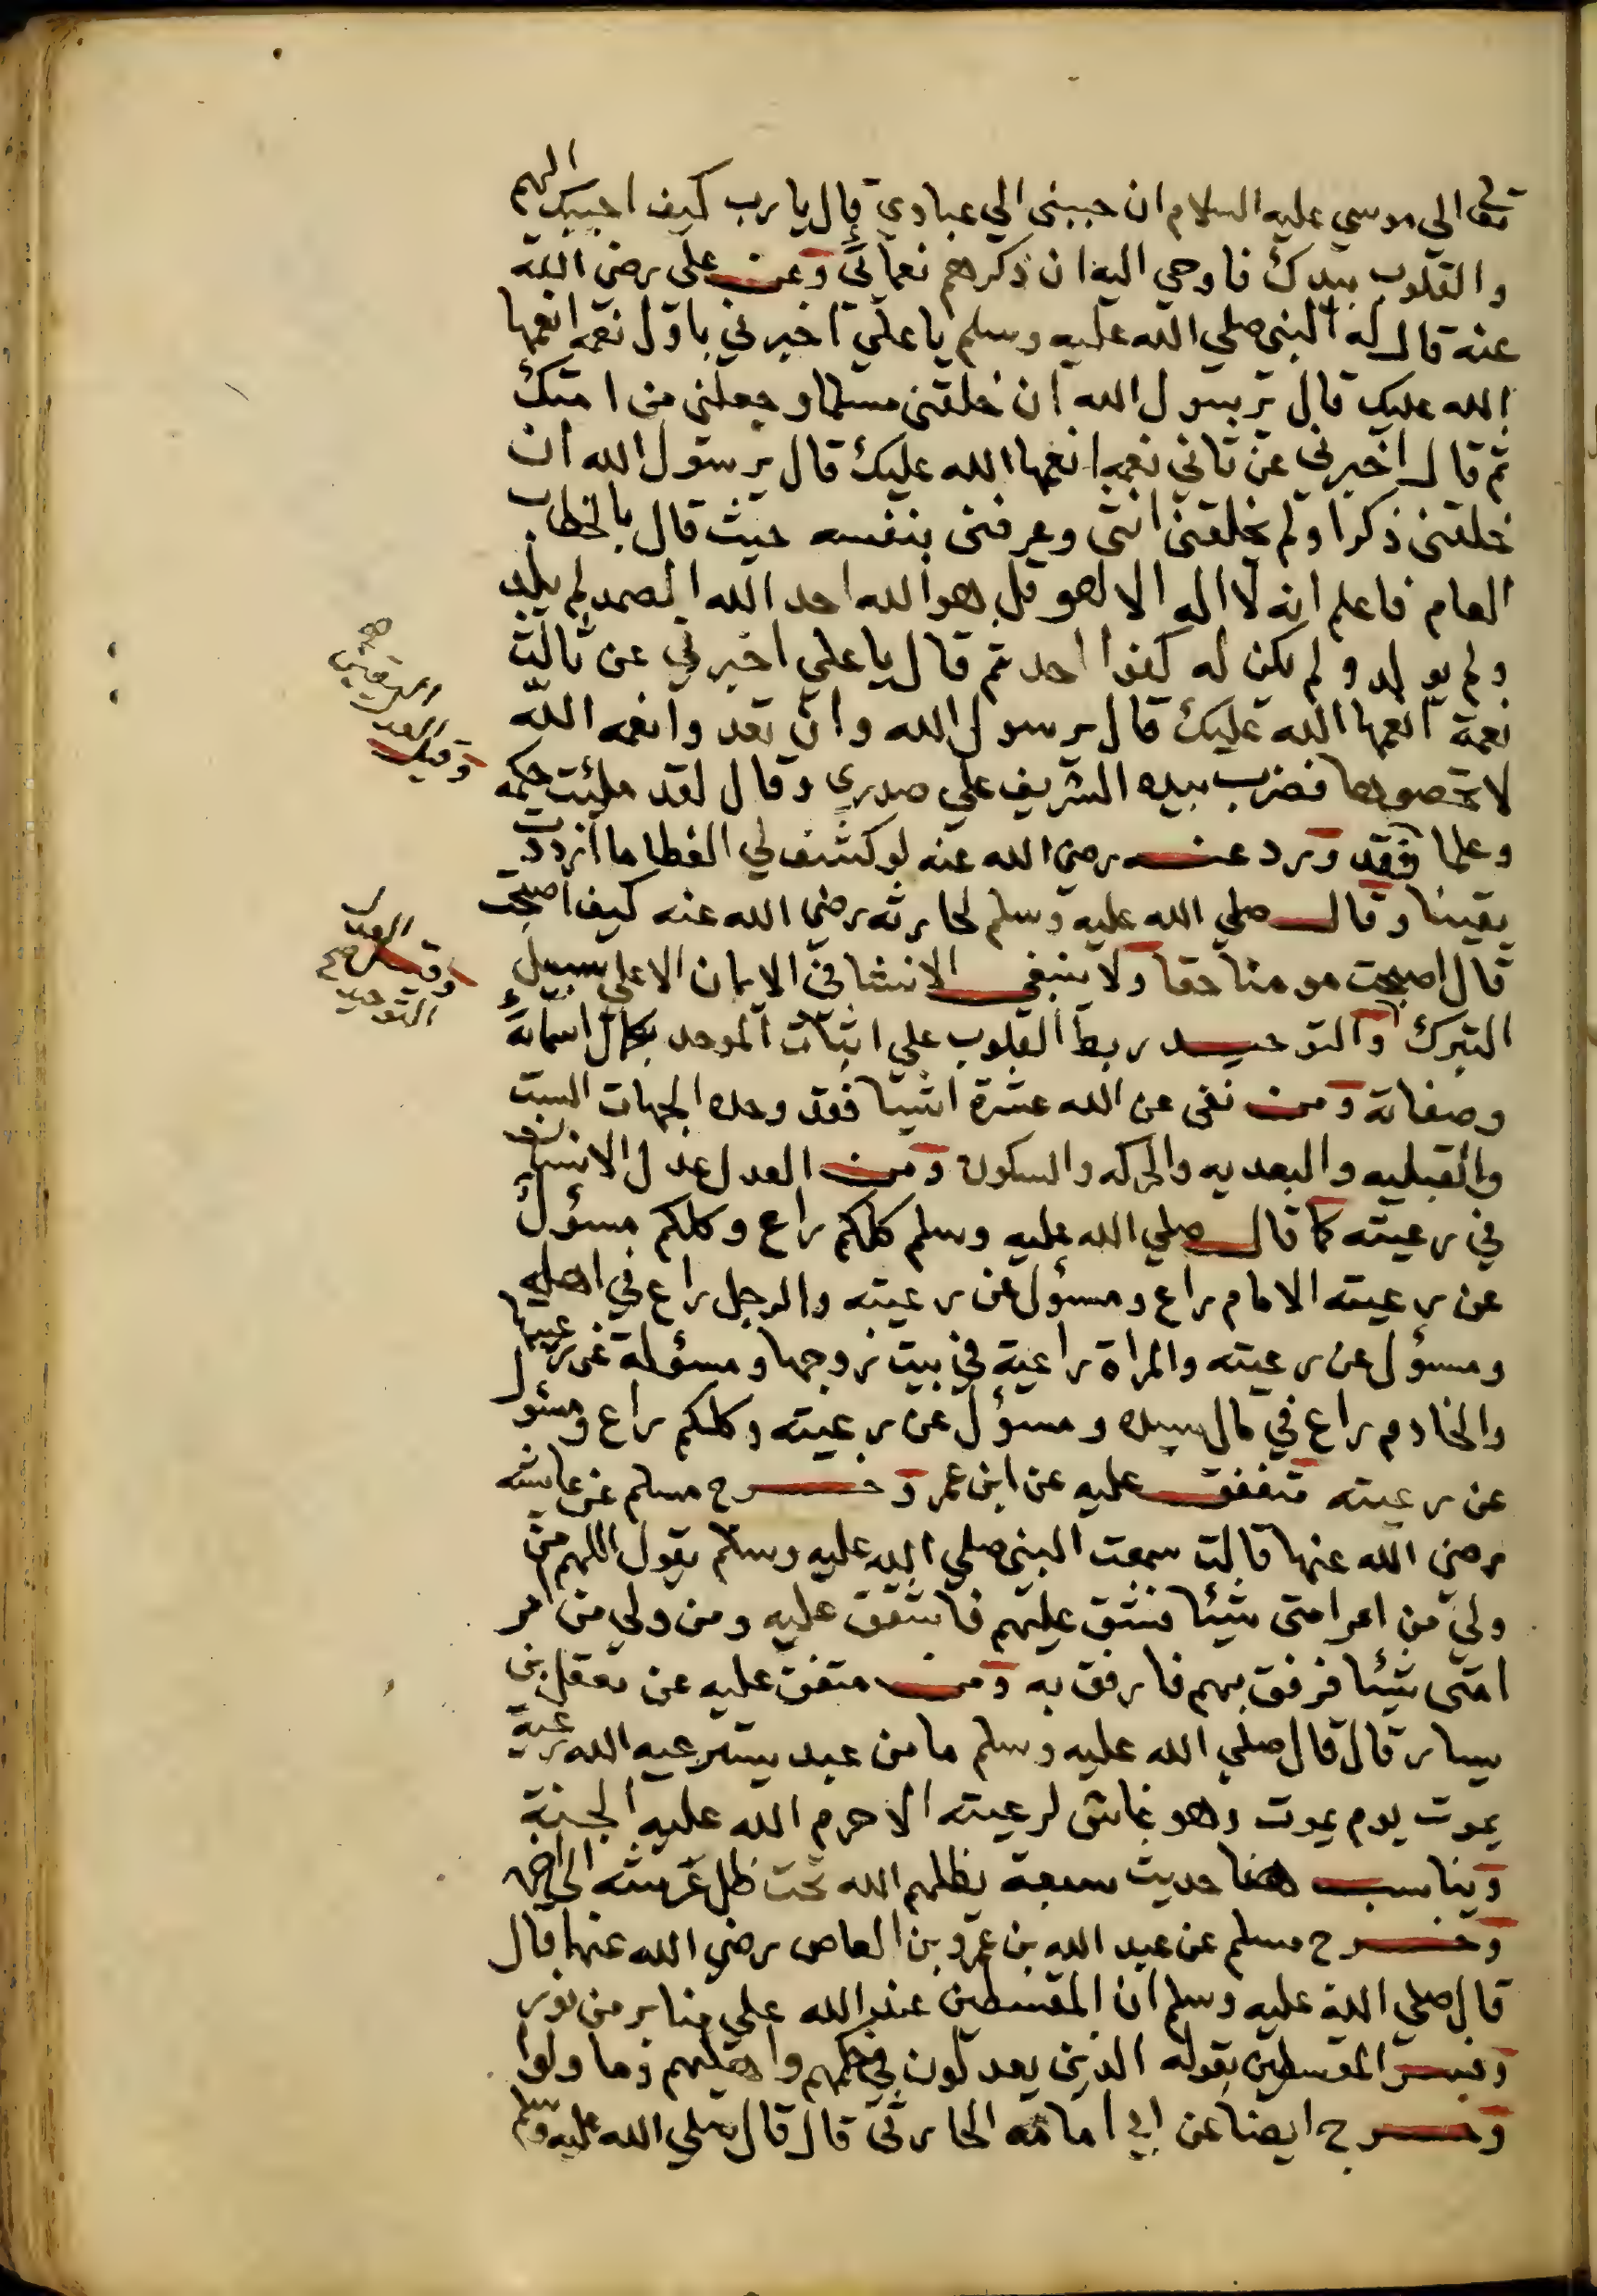 تعالى الي موسي عليه السلام ان حببني الي عبادي قال يا رب كيف احببك اليهم
والقلوب بيدك فاوحي اليه ان ذكرهم نعمائي وعن علي رضي الله
عنه قال له النبي صلي الله عليه وسلم يا علي اخبرني باول نعمه انعمها
الله عليك قال يرسول الله ان خلقني مسلما وجعلني من امتك
ثم قال اخبرني عن ثاني نعمه انعمها الله عليك قال يرسول الله ان
خلقني ذكرا ولم يخلقني انثى وعرفني بنفسه حيث قال بالخطاب
العام فاعلم انه لا اله الا هو قل هو الله احد الله الصمد لم يلد
ولم يولد ولم يكن له كفوا احد ثم قال يا علي اخبرني عن ثالث
نعمة انعمها الله عليك قال يرسول الله وان تعدوا نعمه الله
لا تحصوها فضرب بيده الشريف علي صدري وقال لقد ملئت حكمه
وعلما فقد ورد عنه رضي الله عنه لو كشف لي الغطا ما ازددت
يقينا وقال صلي الله عليه وسلم لحارثه رضي الله عنه كيف اصبحت
قال اصبحت مومنا حقا ولا ينبغي الانشا في الايمان الا علي سبيل
التبرك والتوحيد ربط القلوب علي اثبات الموحد بكمال اسمائه
وصفاته ومن نفى عن الله عشرة اشيا فقد وحده الجهات الست
والقبليه والبعديه والحركه والسكون ومن العدل عدل الانسان
في رعيته كما قال صلي الله عليه وسلم كلكم راع وكلكم مسؤل
عن رعيته الامام راع ومسؤل عن رعيته والرجل راع في اهله
ومسؤل عن رعيته والمراة راعية في بيت زوجها ومسؤلة عن رعيتها
والخادم راع في مال سيده ومسؤل عن رعيته وكلكم راع ومسؤل
عن رعيته متفق عليه عن ابن عمر وخرج مسلم عن عايشه
رضي الله عنها قالت سمعت النبي صلي الله عليه وسلم يقول اللهم من
ولي من امر امتي شيئا فشق عليهم فاشقق عليه ومن ولي من امر
امتي شيئا فرفق بهم فارفق به ومن متفق عليه عن معقل بن
يسار قال قال صلي الله عليه وسلم ما من عبد يسترعيه الله رعية
يموت يوم يموت وهو غاش لرعيته الا حرم الله عليه الجنة
ويناسب هنا حديث سبعة يظلهم الله تحت ظل عرشه الي اخره
وخرج مسلم عن عبد الله بن عمرو بن العاص رضي الله عنهما قال
قال صلي الله عليه وسلم ان المقسطين عند الله علي منابر من نور
وفسر المقسطين بقوله الذين يعدلون في حكمهم واهليهم وما ولوا
وخرج ايضا عن ابي امامه الحارثي قال قال صلي الله عليه وسلم
وقيل
العدل
وقيل العدل
التوحيد